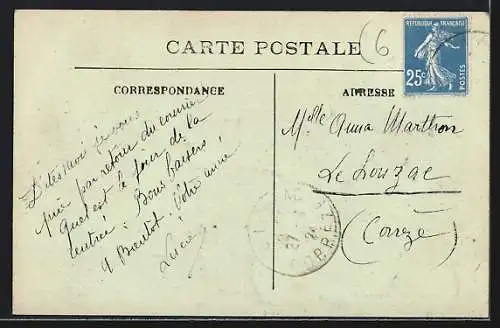 (6
REPUBLIQUE FRANÇAISE
25c
POSTES
CARTE POSTALE
CORRESPONDANCE
ADRESSE
Dites moi je vous
prie par retour du courrier
quel est le jour de la
rentrée. Bons baisers
A Bientôt! Votre amie
Lucie
Mlle Anna Marthon
Le Louzac
(Corrèze)
CORRÈZE